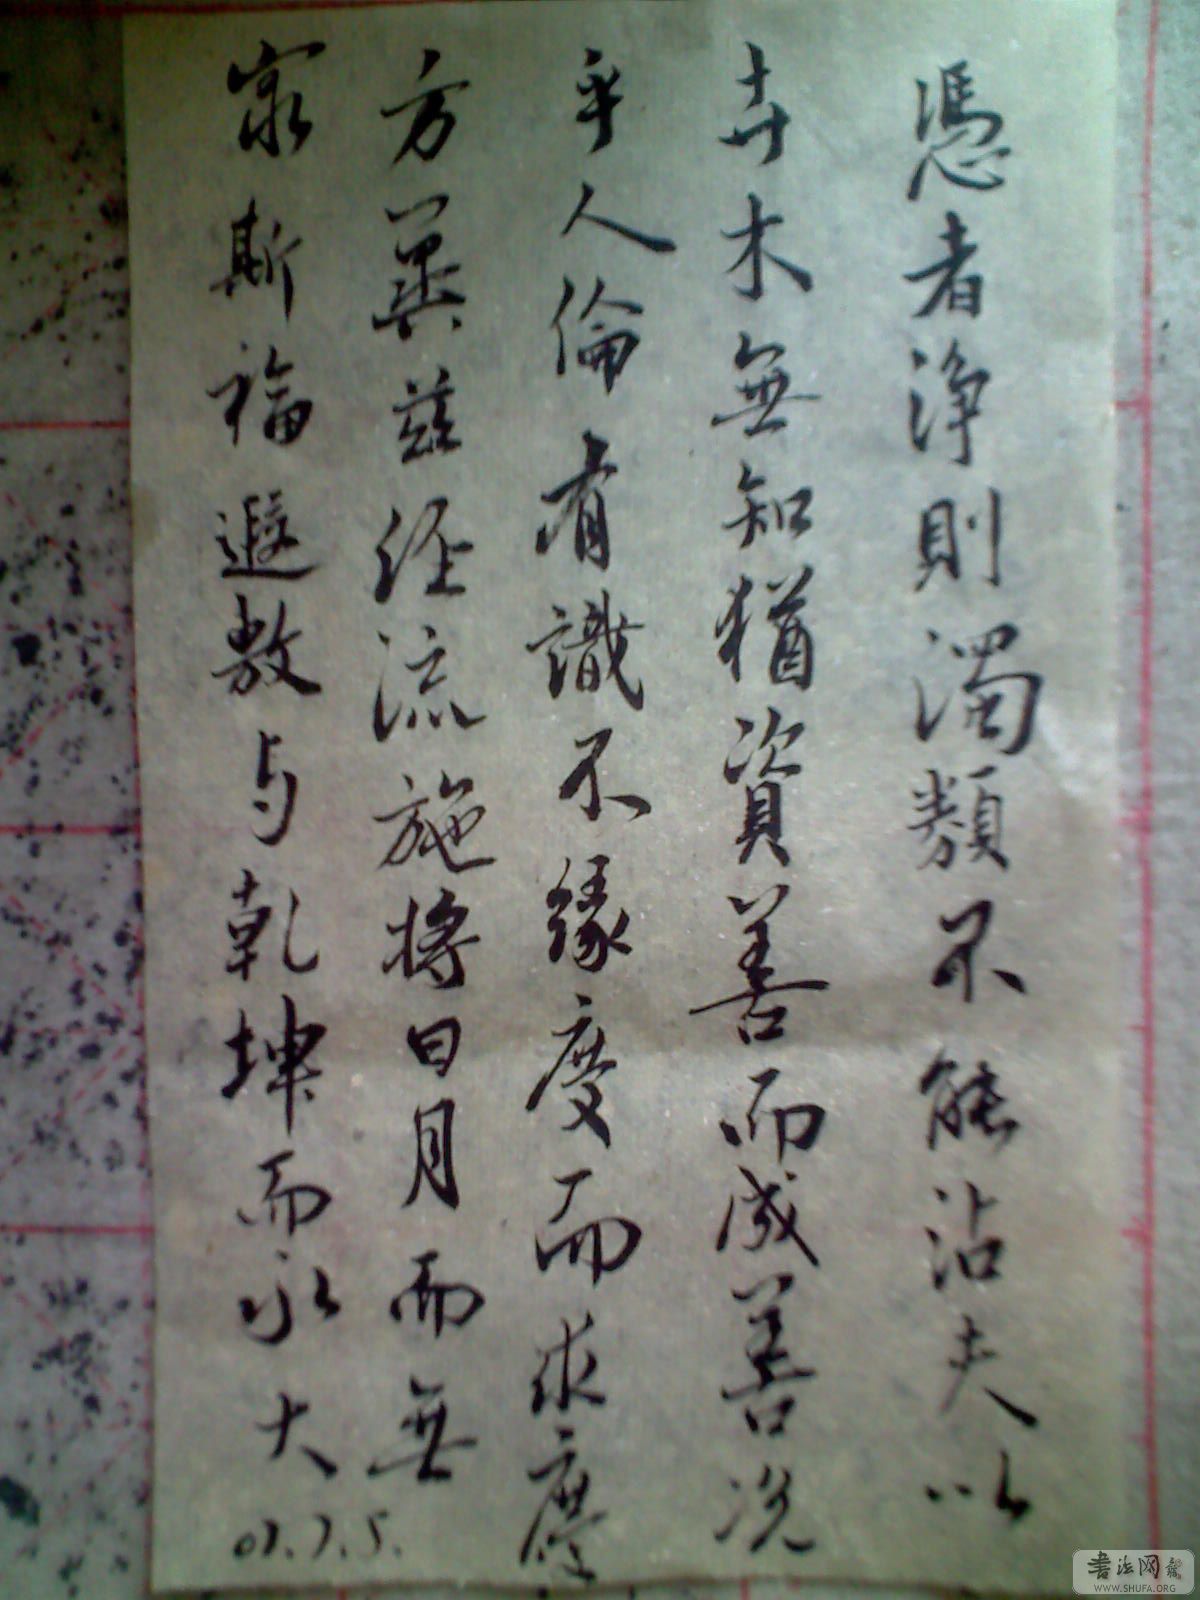 憑者淨則濁類不能沾夫以
卉木無知猶資善而成善況
乎人倫有識不緣慶而求慶
方冀茲經流施將日月而無
窮斯福遐敷与乾坤而永大
07.7.5.
書法网
WWW.SHUFA.ORG